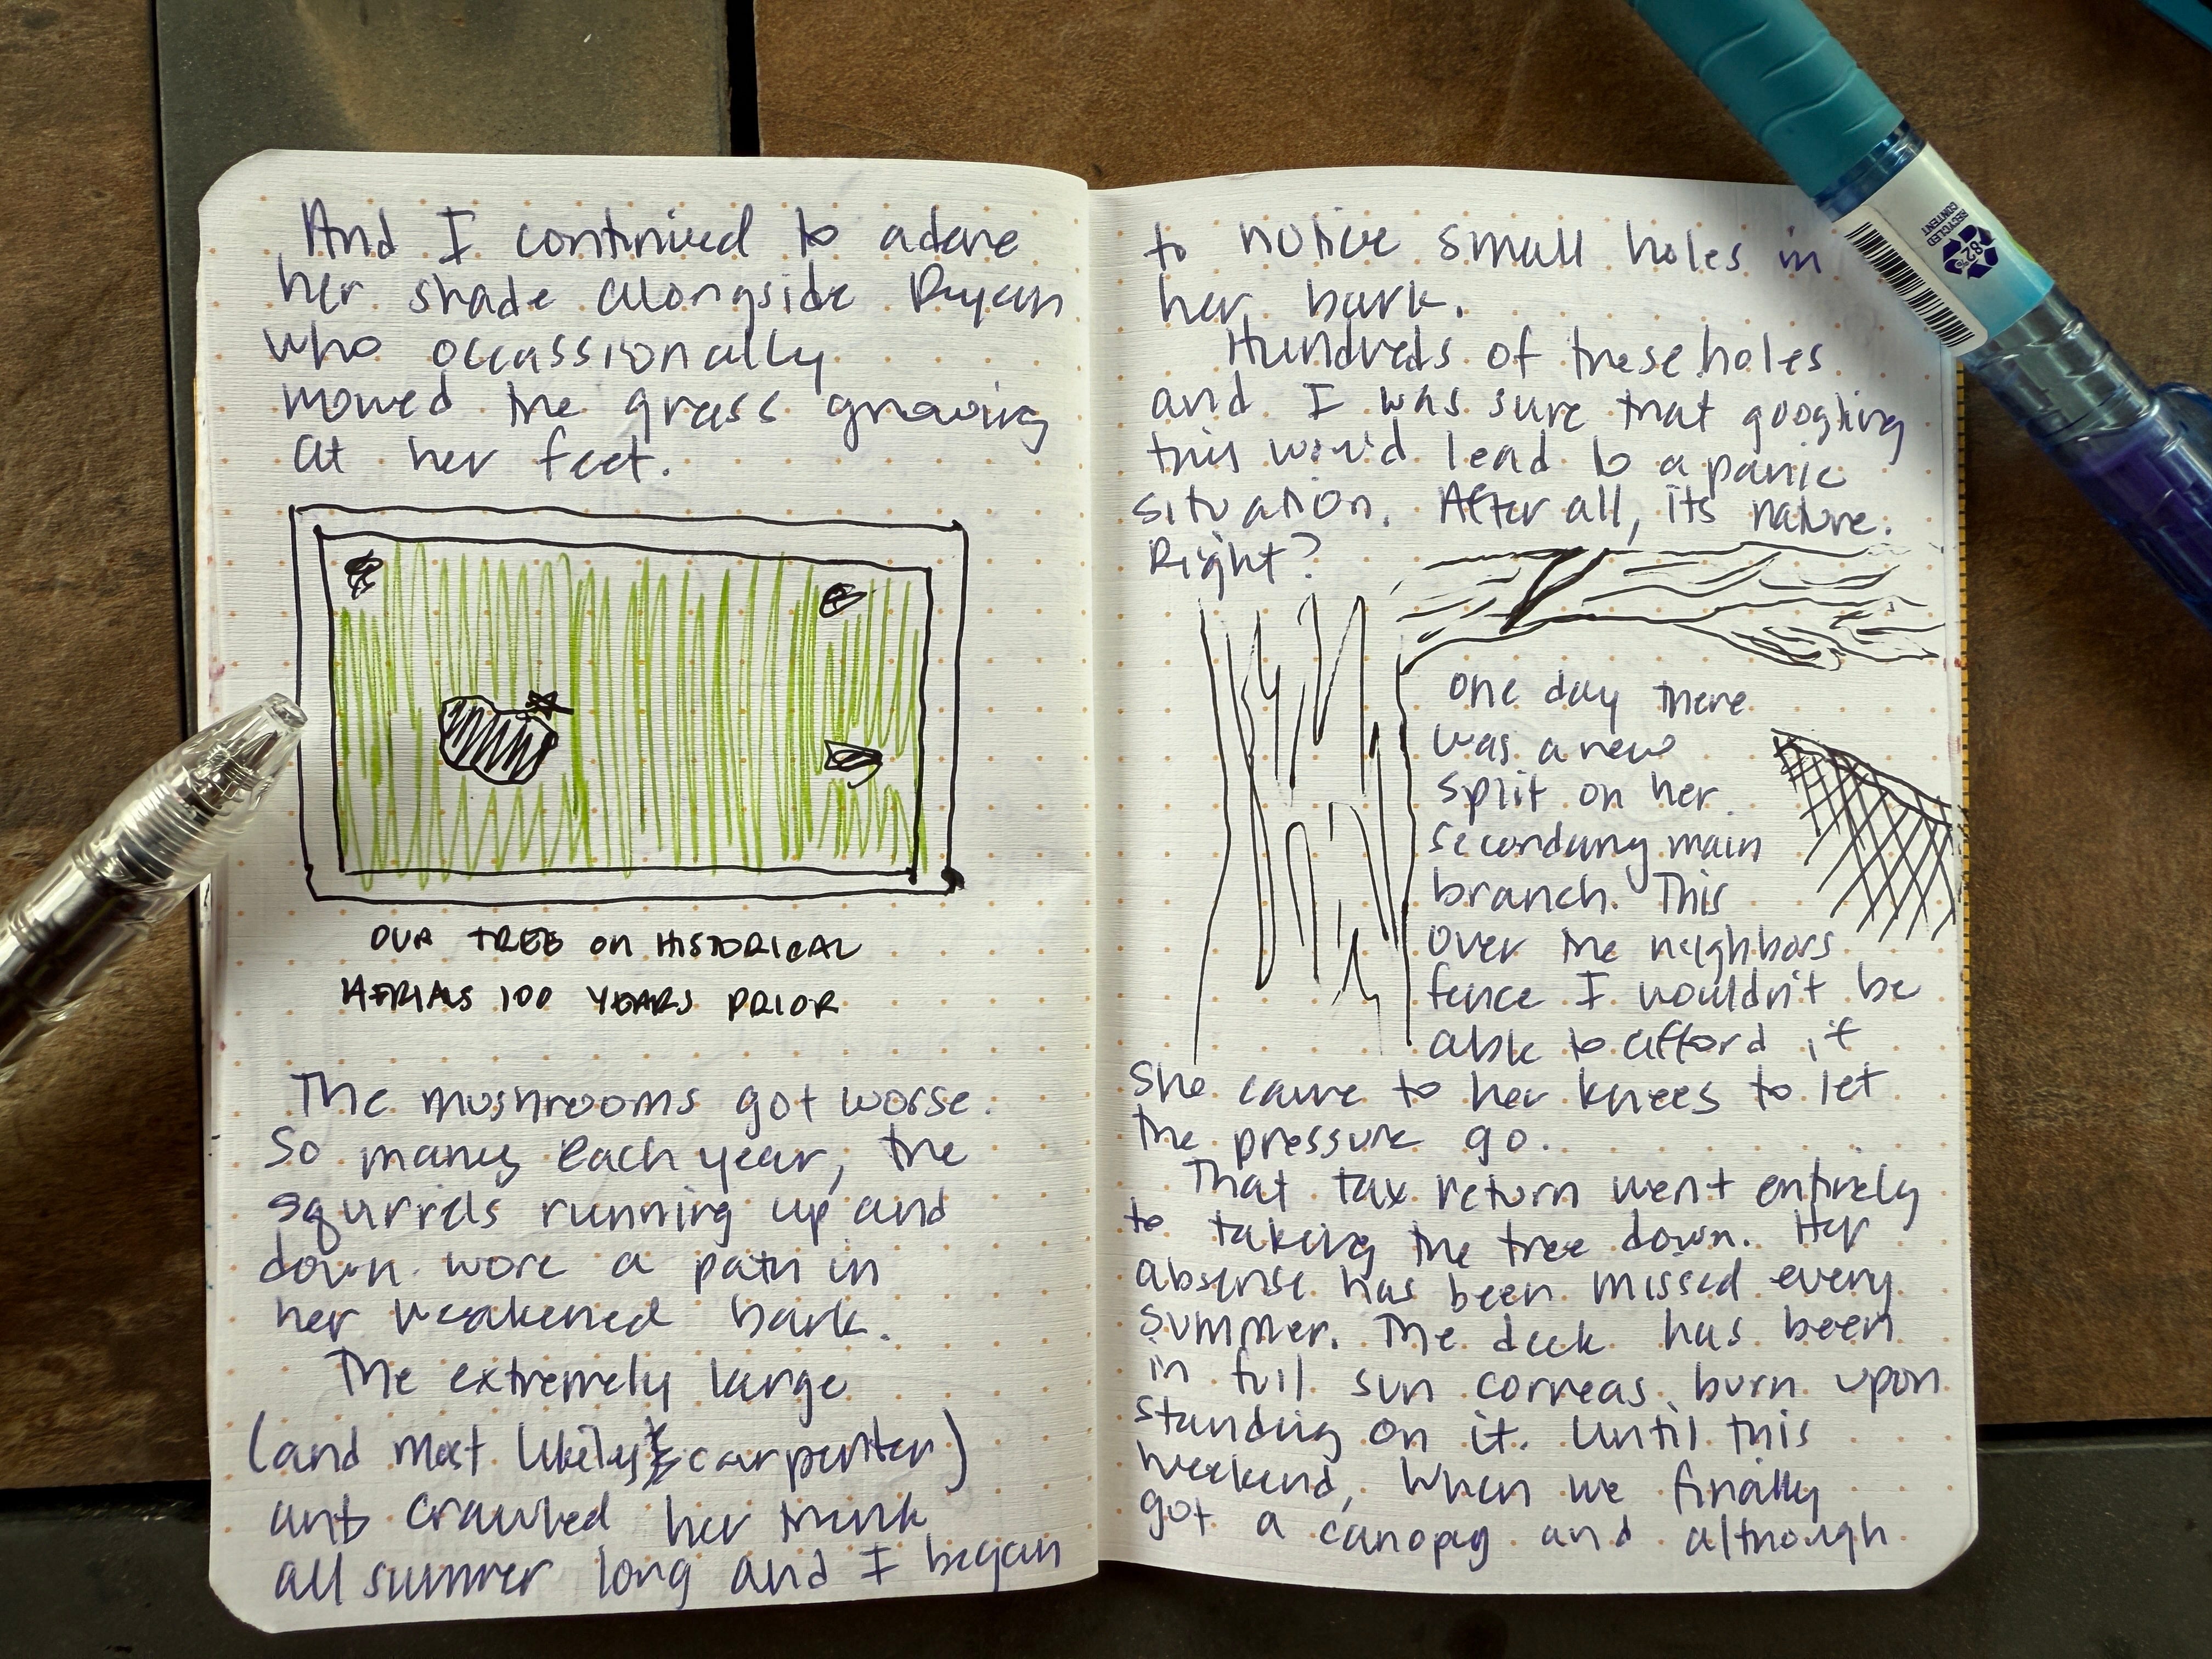 And I continued to adore
her shade alongside Ryan
who occassionally
mowed the grass growing
at her feet.
OUR TREE ON HISTORICAL
AERIALS 100 YEARS PRIOR
The mushrooms got worse.
So many each year, the
squirrels running up and
down wore a path in
her weakened bark.
The extremely large
(and most likely carpenter)
ants crawled her trunk
all summer long and I began
to notice small holes in
her bark.
Hundreds of these holes
and I was sure that googling
this would lead to a panic
situation. After all, its nature.
Right?
one day there
was a new
split on her
secondary main
branch. This
over the neighbors
fence I wouldn't be
able to afford it
She came to her knees to let
the pressure go.
That tax return went entirely
to taking the tree down. Her
absense has been missed every
summer. The deck has been
in full sun corneas burn upon
standing on it. Until this
weekend, when we finally
got a canopy and although
82%
RECYCLED
CONTENT